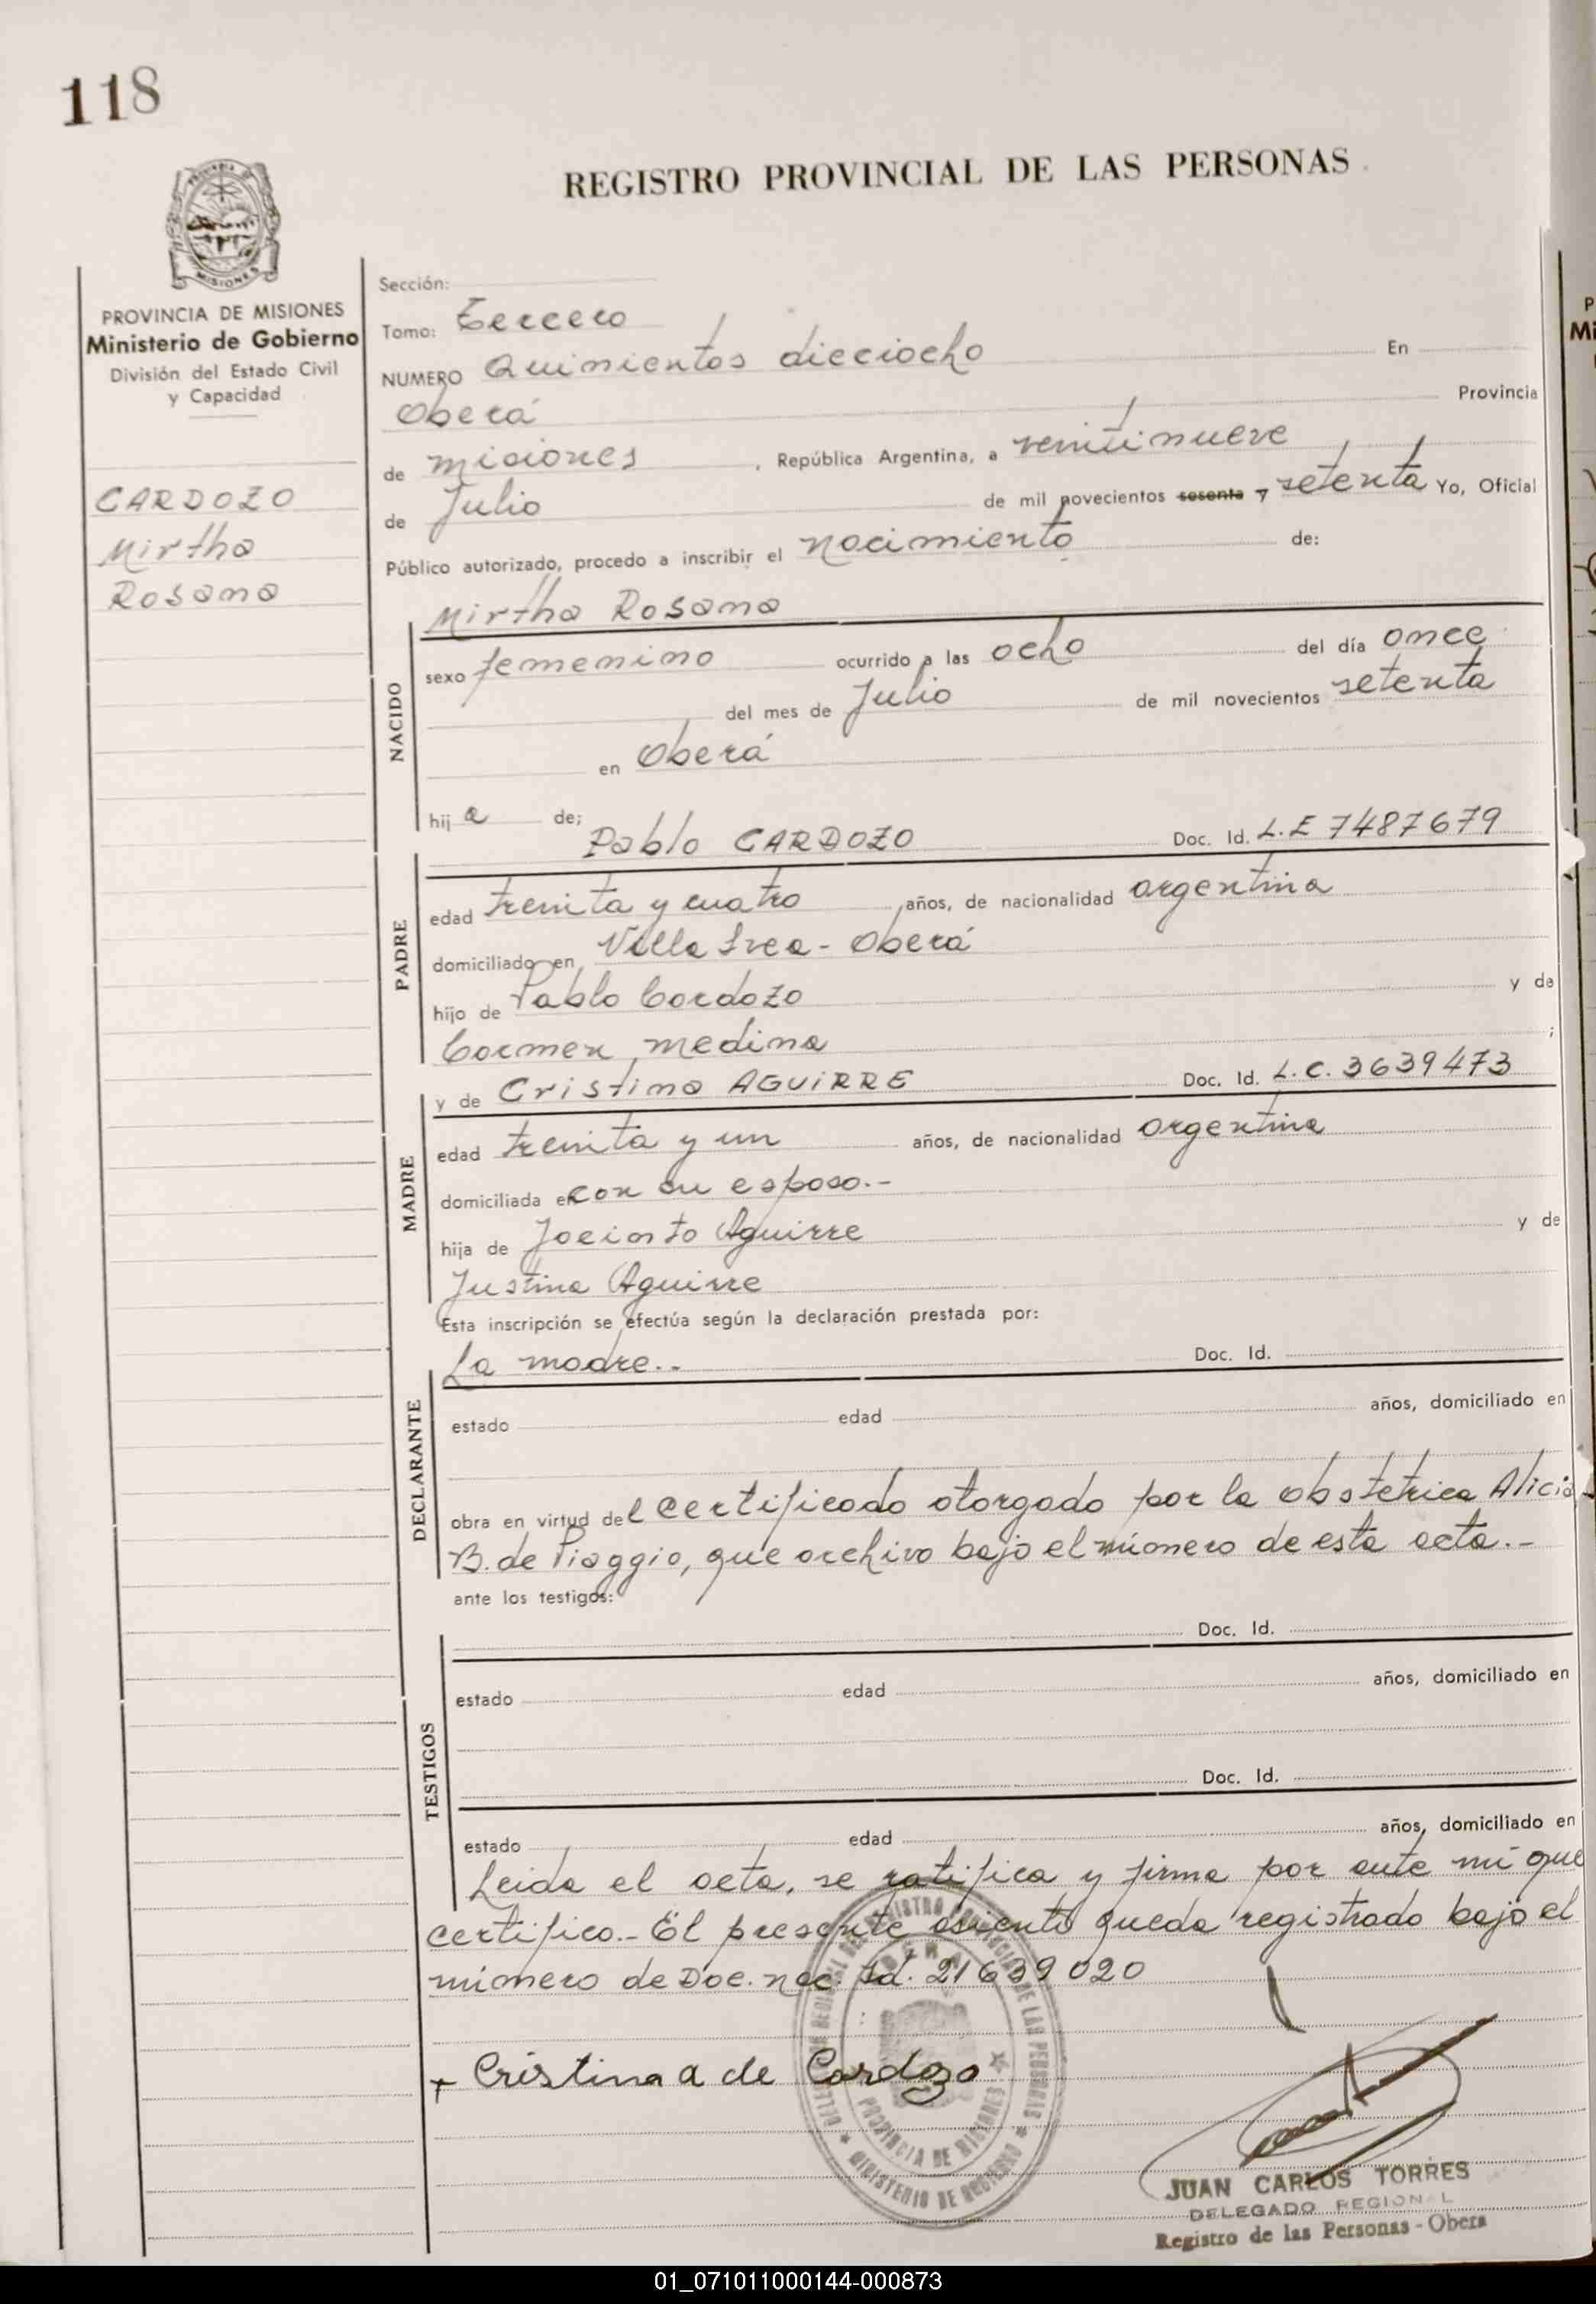 118
REGISTRO PROVINCIAL DE LAS PERSONAS
MISIONES
PROVINCIA DE MISIONES
Ministerio de Gobierno
División del Estado Civil
y Capacidad
CARDOZO
Mirtha
Rosana
Sección:
Tomo: Tercero
NUMERO Quinientos dieciocho En
Oberá Provincia
de misiones , República Argentina, a veintinueve
de Julio de mil novecientos sesenta y setenta Yo, Oficial
Público autorizado, procedo a inscribir el nacimiento de:
Mirtha Rosana
NACIDO
sexo femenino ocurrido a las ocho del día once
del mes de Julio de mil novecientos setenta
en Oberá
hij a de; Pablo CARDOZO Doc. Id. L.E 7487679
PADRE
edad treinta y cuatro años, de nacionalidad argentina
domiciliado en Villa Svea - Oberá
hijo de Pablo Cardozo y de
Carmen medina ;
y de Cristina AGUIRRE Doc. Id. L.C. 3639473
MADRE
edad treinta y un años, de nacionalidad argentina
domiciliada en con su esposo.-
hija de Jacinto Aguirre y de
Justina Aguirre
Esta inscripción se efectúa según la declaración prestada por:
La madre.- Doc. Id.
DECLARANTE
estado edad años, domiciliado en
obra en virtud del certificado otorgado por la obstetrica Alicia
B. de Piaggio, que archivo bajo el número de esta acta.-
ante los testigos:
Doc. Id.
TESTIGOS
estado edad años, domiciliado en
Doc. Id.
estado edad años, domiciliado en
Leida el acta, se ratifica y firma por ante mí que
certifico.- El presente asiento queda registrado bajo el
número de Doc. nac. Id. 21639020
Cristina a de Cardozo
PROVINCIA DE MISIONES
MINISTERIO DE GOBIERNO
JUAN CARLOS TORRES
DELEGADO REGIONAL
Registro de las Personas - Obera
01_071011000144-000873